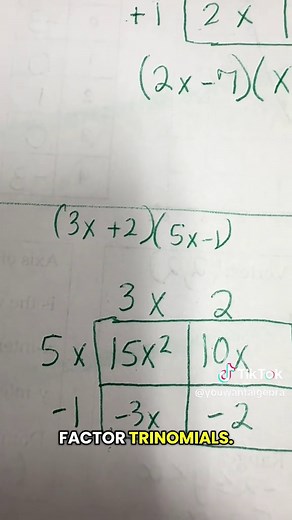 +1 2x
(2x-7)(x
(3x+2)(5x-1)
3x 2
5x 15x² 10x
TikTok
-1 -3x -2
FACTOR TRINOMIALS.